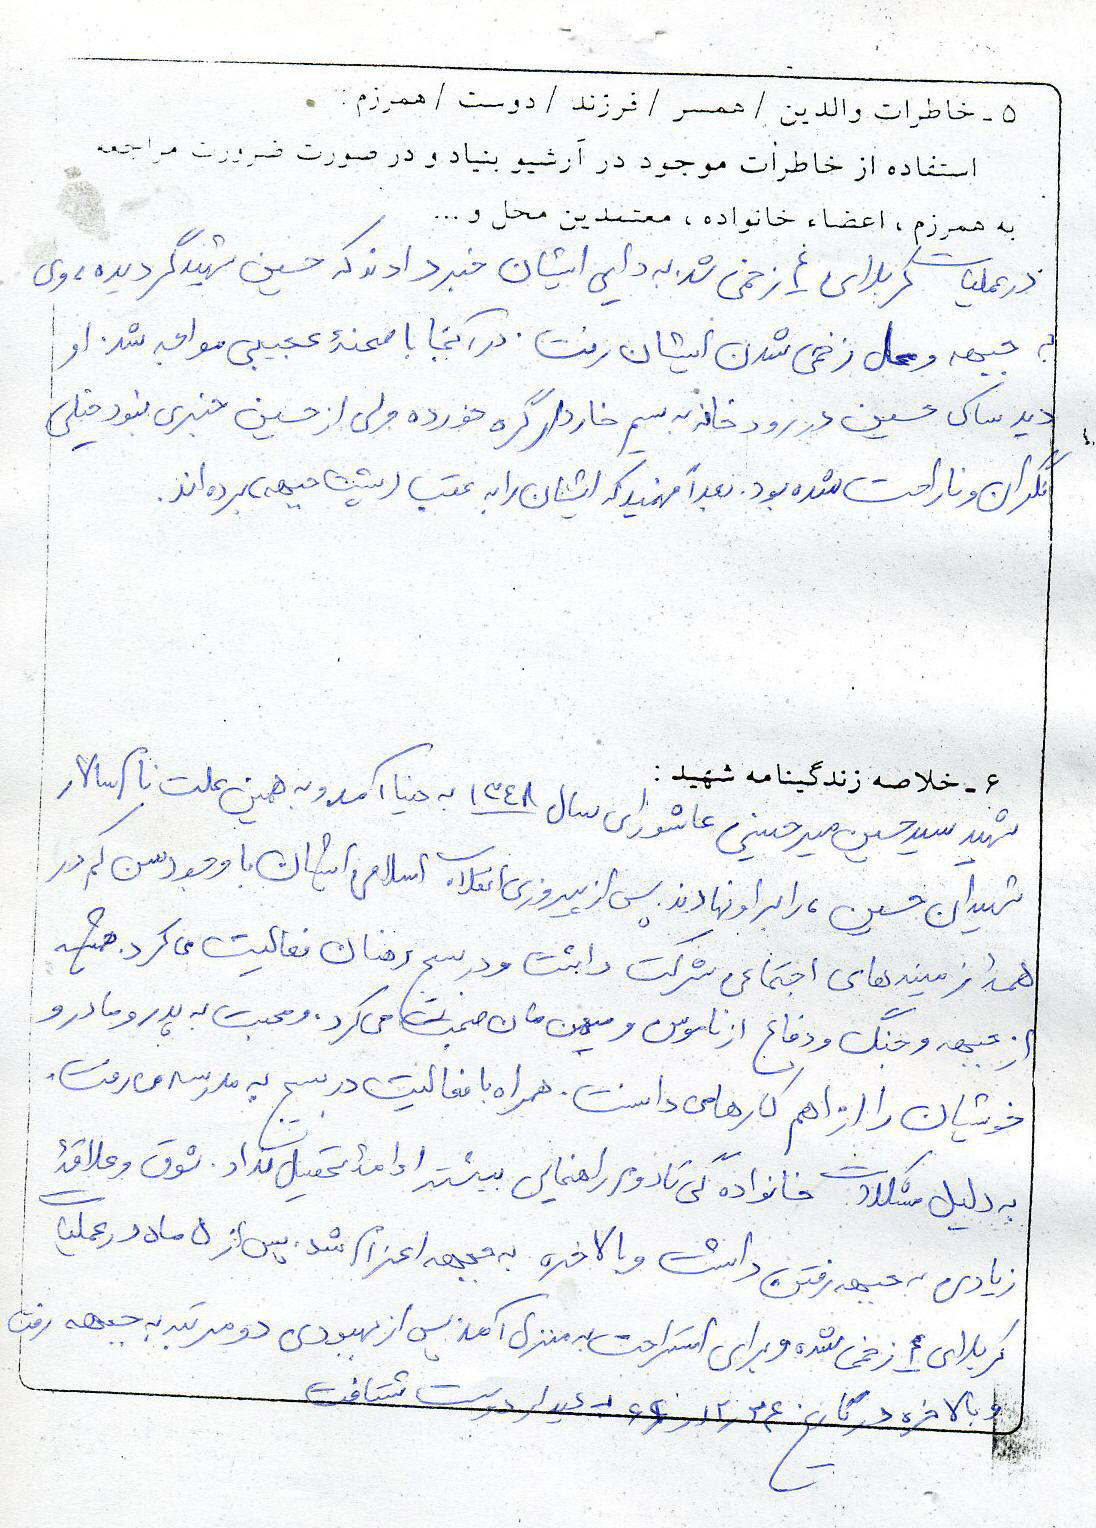 ۵ ـ خاطرات والدین / همسر / فرزند / دوست / همرزم :
استفاده از خاطرات موجود در آرشیو بنیاد و در صورت ضرورت مراجعه
به همرزم ، اعضاء خانواده ، معتمدین محل و ...
در عملیات کربلای ۴ زخمی شد. به دایی ایشان خبر دادند که حسین شهید گردیده، وی
به جبهه و محل زخمی شدن ایشان رفت. در آنجا با صحنهٔ عجیبی مواجه شد. او
دید ساک حسین در رودخانه به سیم خاردار گره خورده ولی از حسین خبری نبود خیلی
نگران و ناراحت شده بود. بعداً فهمید که ایشان را به عقب (پشت جبهه) برده‌اند.
۶ ـ خلاصه زندگینامه شهید :
شهید سید حسین میرحسینی عاشورای سال ۱۳۴۸ به دنیا آمد و به همین علت نام سالار
شهیدان حسین، را بر او نهادند. پس از پیروزی انقلاب اسلامی ایشان با وجود سن کم در
همه زمینه‌های اجتماعی شرکت داشت و در بسیج فعالیت می‌کرد. همیشه
از جبهه و جنگ و دفاع از ناموس و میهن‌مان صحبت می‌کرد. و محبت به پدر و مادر و
خویشان را از اهم کارها می‌دانست. همراه با فعالیت در بسیج به مدرسه می‌رفت.
به دلیل مشکلات خانوادگی تا دوم راهنمایی بیشتر ادامهٔ تحصیل نداد. شوق و علاقهٔ
زیادی به جبهه رفتن داشت و بالاخره به جبهه اعزام شد. پس از ۵ ماه در عملیات
کربلای ۴ زخمی شده و برای استراحت به منزل آمد. پس از بهبودی دو مرتبه به جبهه رفت
و بالاخره در تاریخ به دیدار دوست شتافت